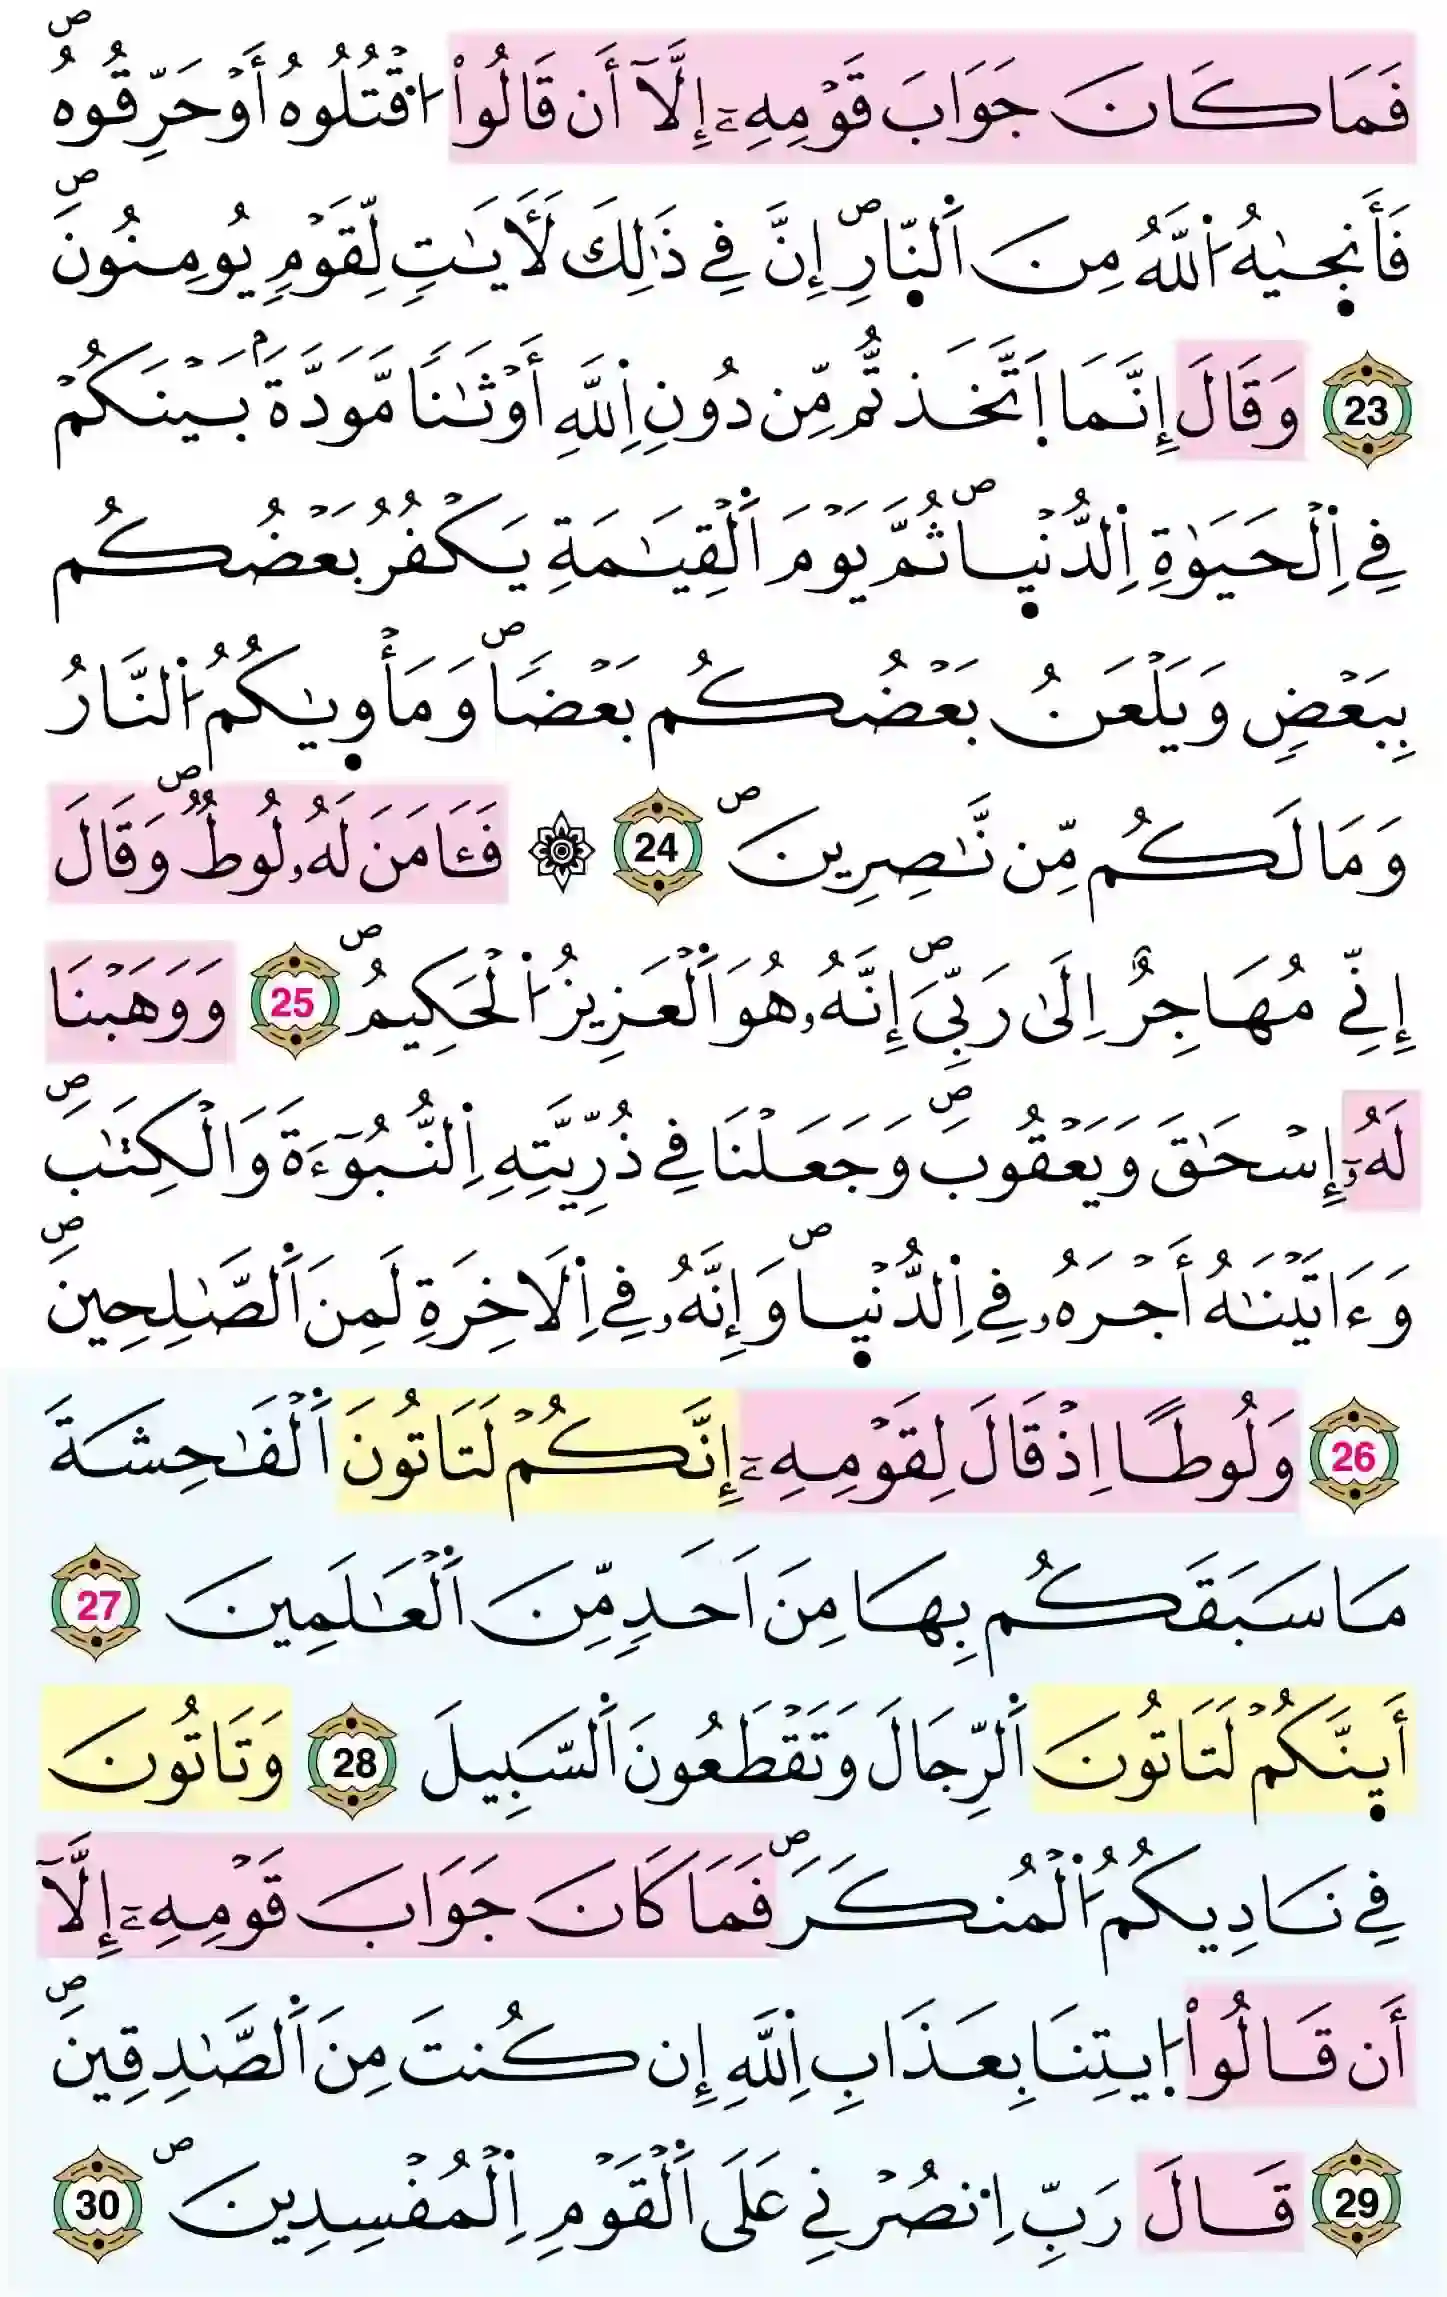 فَمَا كَانَ جَوَابَ قَوْمِهِۦٓ إِلَّآ أَن قَالُواْ اُ۟قْتُلُوهُ أَوْ حَرِّقُوهُۖ
فَأَنج۪يٰهُ اُ۬للَّهُ مِنَ اَ۬لنّ۪ارِۖ إِنَّ فِے ذَٰلِكَ لَأٓيَٰتٖ لِّقَوْمٖ يُومِنُونَۖ
23 وَقَالَ إِنَّمَا اَ۪تَّخَذتُّم مِّن دُونِ اِ۬للَّهِ أَوْثَٰناٗ مَّوَدَّةَۢ بَيْنَكُمْ
فِے اِ۬لْحَيَوٰةِ اِ۬لدُّنْي۪اۖ ثُمَّ يَوْمَ اَ۬لْقِيَٰمَةِ يَكْفُرُ بَعْضُكُم
بِبَعْضٖ وَيَلْعَنُ بَعْضُكُم بَعْضاٗۖ وَمَأْو۪يٰكُمُ اُ۬لنَّارُ
وَمَا لَكُم مِّن نَّٰصِرِينَۖ 24 ۞ فَـَٔامَنَ لَهُۥ لُوطٞۖ وَقَالَ
إِنِّے مُهَاجِرٌ اِلَىٰ رَبِّيَۖ إِنَّهُۥ هُوَ اَ۬لْعَزِيزُ اُ۬لْحَكِيمُۖ 25 وَوَهَبْنَا
لَهُۥٓ إِسْحَٰقَ وَيَعْقُوبَۖ وَجَعَلْنَا فِے ذُرِّيَّتِهِ اِ۬لنُّبُوٓءَةَ وَالْكِتَٰبَۖ
وَءَاتَيْنَٰهُ أَجْرَهُۥ فِے اِ۬لدُّنْي۪اۖ وَإِنَّهُۥ فِے اِ۬لَاخِرَةِ لَمِنَ اَ۬لصَّٰلِحِينَۖ
26 وَلُوطاً اِذْ قَالَ لِقَوْمِهِۦٓ إِنَّكُمْ لَتَاتُونَ اَ۬لْفَٰحِشَةَ
مَا سَبَقَكُم بِهَا مِنَ اَحَدٖ مِّنَ اَ۬لْعَٰلَمِينَ 27
أَي۪نَّكُمْ لَتَاتُونَ اَ۬لرِّجَالَ وَتَقْطَعُونَ اَ۬لسَّبِيلَ 28 وَتَاتُونَ
فِے نَادِيكُمُ اُ۬لْمُنكَرَۖ فَمَا كَانَ جَوَابَ قَوْمِهِۦٓ إِلَّآ
أَن قَالُواْ اُ۪يتِنَا بِعَذَابِ اِ۬للَّهِ إِن كُنتَ مِنَ اَ۬لصَّٰدِقِينَۖ
29 قَالَ رَبِّ اِ۟نصُرْنِے عَلَى اَ۬لْقَوْمِ اِ۬لْمُفْسِدِينَۖ 30